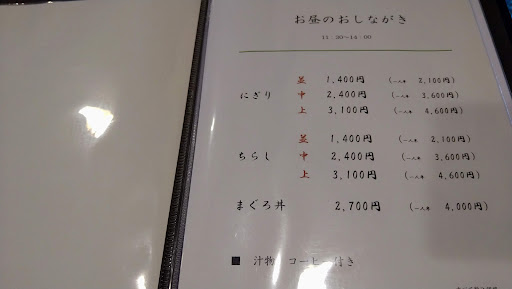 お昼のおしながき
11:00~14:00
にぎり
並 1,400円 (一人半 2,100円)
中 2,400円 (一人半 3,600円)
上 3,100円 (一人半 4,600円)
ちらし
並 1,400円 (一人半 2,100円)
中 2,400円 (一人半 3,600円)
上 3,100円 (一人半 4,600円)
まぐろ丼 2,700円 (一人半 4,000円)
■ 汁物 コーヒー付き